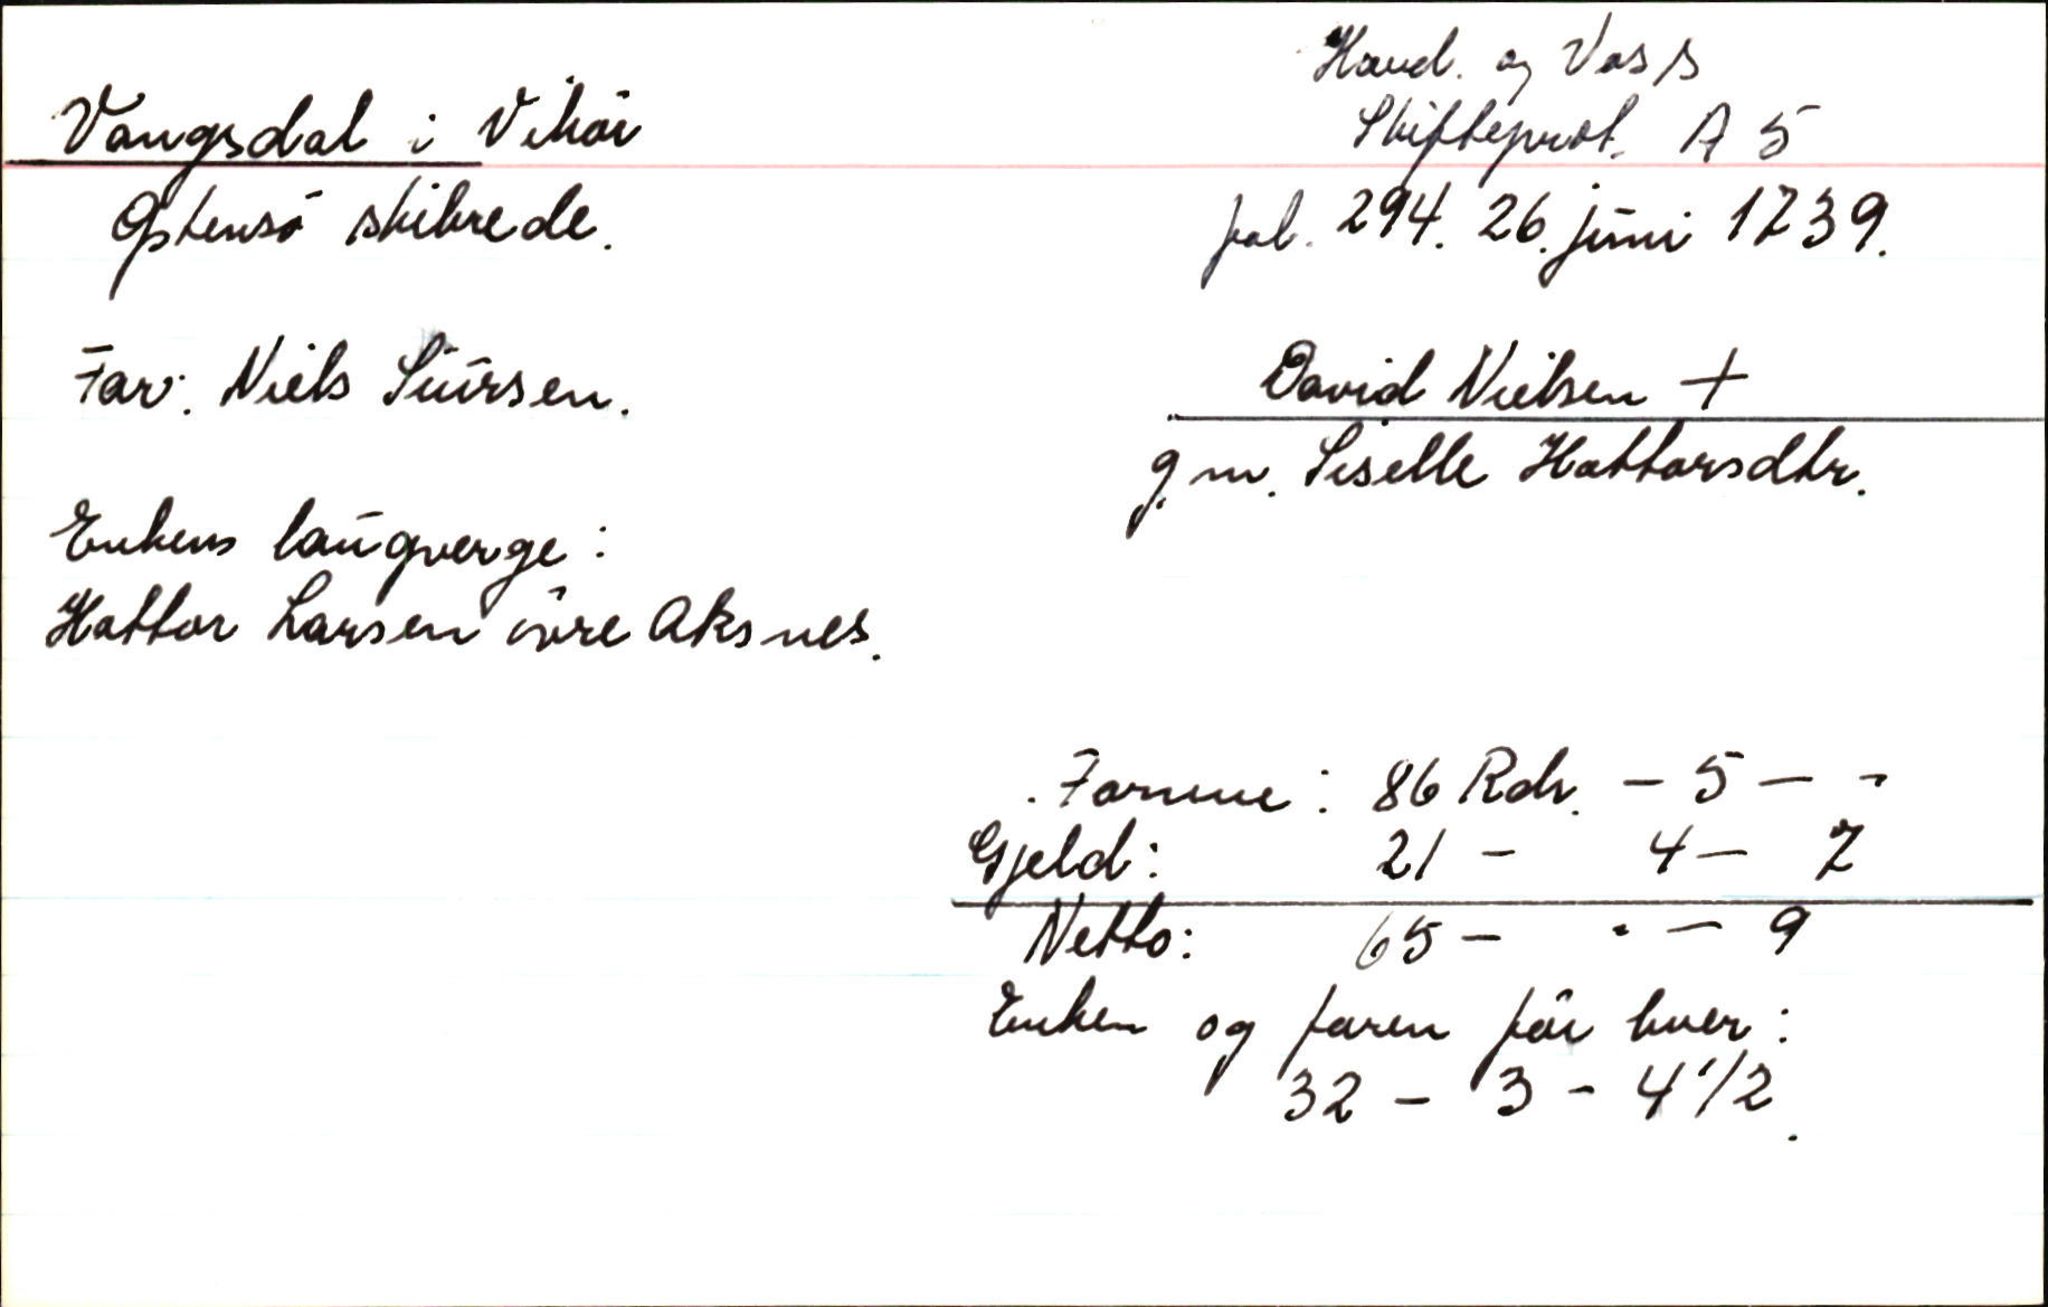 Hard. og Voss
Skifteprot. A 5
fol. 294. 26. juni 1739.
Vangsdal i Vikør
Østensø skibrede.
Far: Niels Siursen.
David Nielsen +
g.m. Siselle Hattorsdtr.
Enkens laugverge:
Hattor Larsen övre Aksnes.
Formue: 86 Rdr. - 5 - -
Gjeld: 21 - 4 - 7
Netto: 65 - . - 9
Enken og faren får hver:
32 - 3 - 4 1/2.